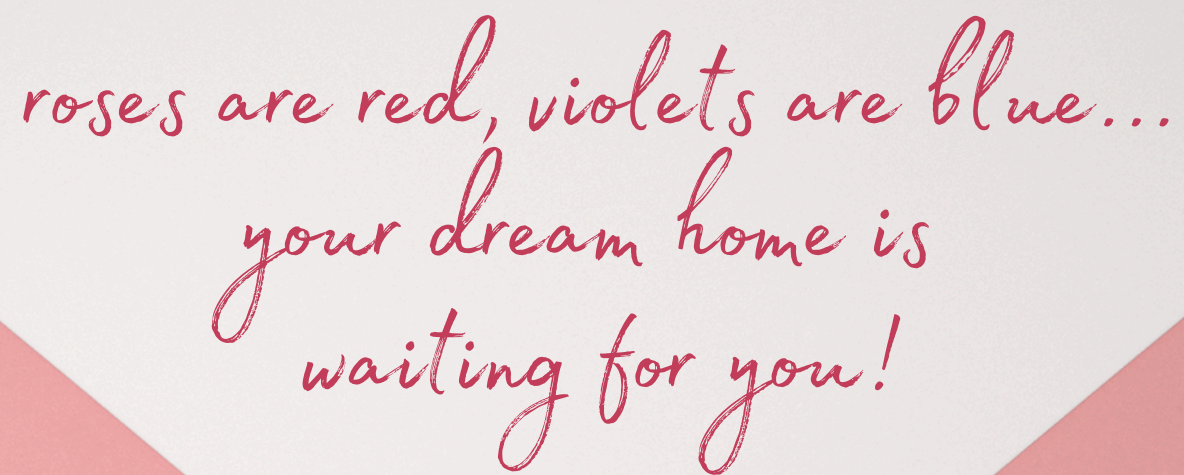 roses are red, violets are blue...
your dream home is
waiting for you!